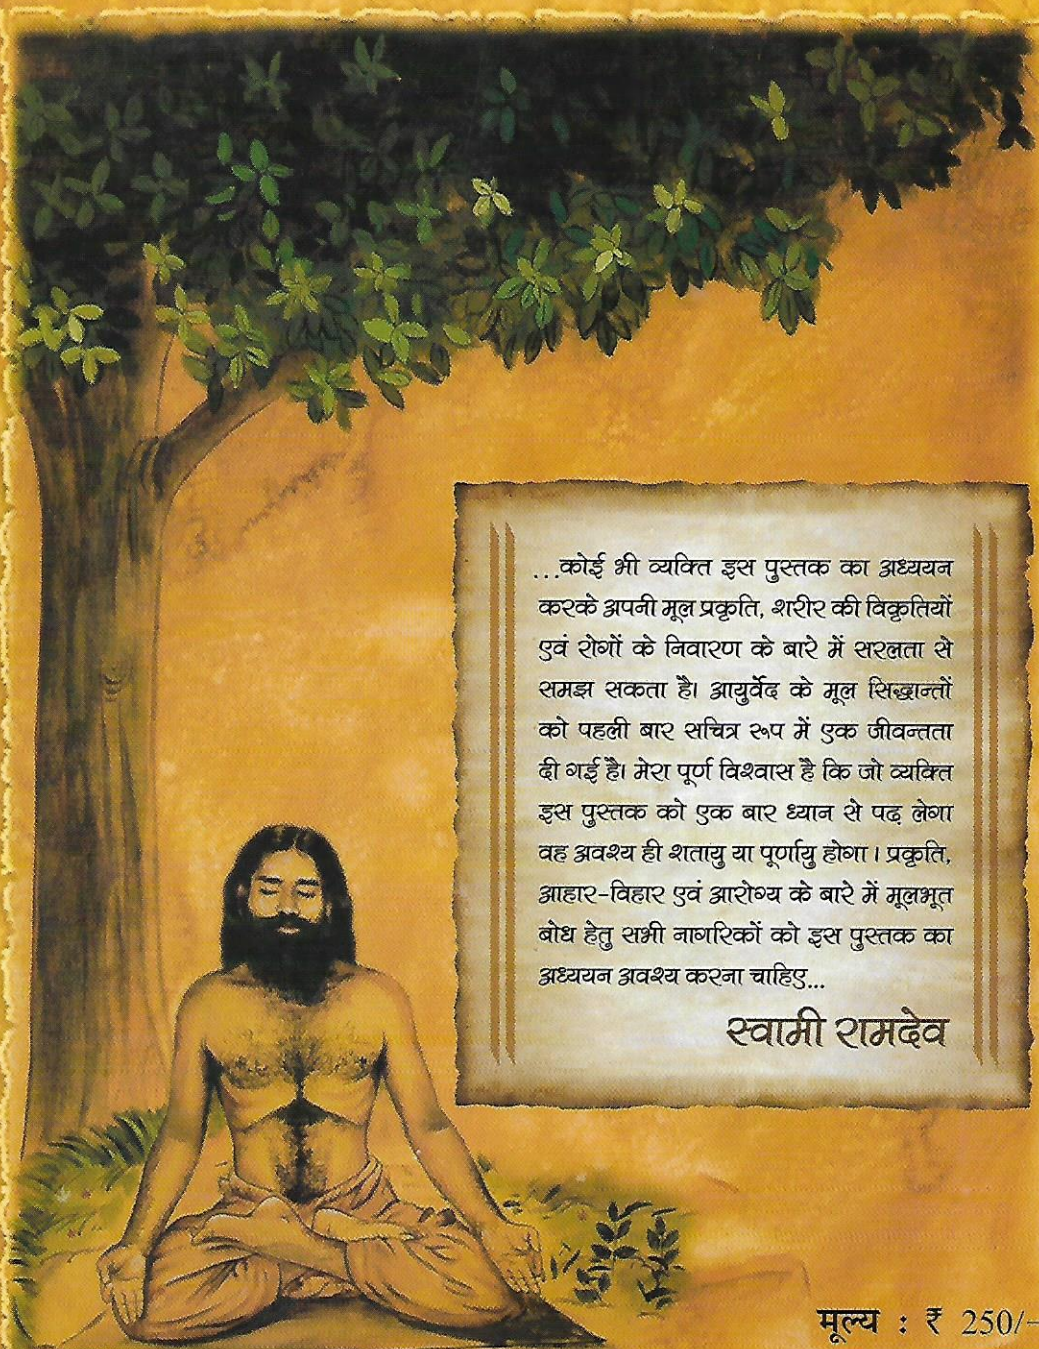 ...कोई भी व्यक्ति इस पुस्तक का अध्ययन
करके अपनी मूल प्रकृति, शरीर की विकृतियों
एवं रोगों के निवारण के बारे में सरलता से
समझ सकता है। आयुर्वेद के मूल सिद्धान्तों
को पहली बार सचित्र रूप में एक जीवन्तता
दी गई है। मेरा पूर्ण विश्वास है कि जो व्यक्ति
इस पुस्तक को एक बार ध्यान से पढ़ लेगा
वह अवश्य ही शतायु या पूर्णायु होगा। प्रकृति,
आहार-विहार एवं आरोग्य के बारे में मूलभूत
बोध हेतु सभी नागरिकों को इस पुस्तक का
अध्ययन अवश्य करना चाहिए...
स्वामी रामदेव
मूल्य : ₹ 250/-